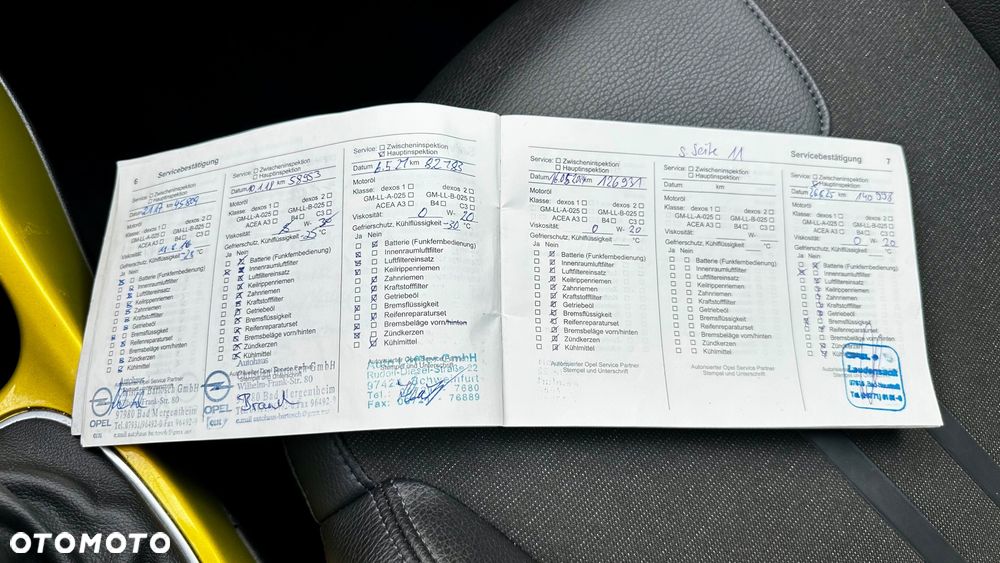 6 Servicebestätigung
Service: Zwischeninspektion
Hauptinspektion
Datum km 45809
Motoröl
Klasse: dexos 1 dexos 2
GM-LL-A-025 GM-LL-B-025
ACEA A3 B4 C3
Viskosität: W-
Gefrierschutz, Kühlflüssigkeit °C
Ja Nein
Batterie (Funkfernbedienung)
Innenraumluftfilter
Luftfiltereinsatz
Keilrippenriemen
Zahnriemen
Kraftstofffilter
Getriebeöl
Bremsflüssigkeit
Reifenreparaturset
Bremsbeläge vorn/hinten
Zündkerzen
Kühlmittel
Autorisierter Opel Service Partner
Stempel und Unterschrift
Wilhelm-Frank-Str. 80
97980 Bad Mergentheim
OPEL
Service: Zwischeninspektion
Hauptinspektion
Datum km 58953
Motoröl
Klasse: dexos 1 dexos 2
GM-LL-A-025 GM-LL-B-025
ACEA A3 B4 C3
Viskosität: W-
Gefrierschutz, Kühlflüssigkeit -25 °C
Ja Nein
Batterie (Funkfernbedienung)
Innenraumluftfilter
Luftfiltereinsatz
Keilrippenriemen
Zahnriemen
Kraftstofffilter
Getriebeöl
Bremsflüssigkeit
Reifenreparaturset
Bremsbeläge vorn/hinten
Zündkerzen
Kühlmittel
Autohaus
Autorisierter Opel Service Partner
Stempel und Unterschrift
Wilhelm-Frank-Str. 80
97980 Bad Mergentheim
OPEL
Service: Zwischeninspektion
Hauptinspektion
Datum 6.5.21 km 82183
Motoröl
Klasse: dexos 1 dexos 2
GM-LL-A-025 GM-LL-B-025
ACEA A3 B4 C3
Viskosität: 0 W- 20
Gefrierschutz, Kühlflüssigkeit -30 °C
Ja Nein
Batterie (Funkfernbedienung)
Innenraumluftfilter
Luftfiltereinsatz
Keilrippenriemen
Zahnriemen
Kraftstofffilter
Getriebeöl
Bremsflüssigkeit
Reifenreparaturset
Bremsbeläge vorn/hinten
Zündkerzen
Kühlmittel
Autorisierter Opel Service Partner
GmbH
Rudolf-Diesel-Straße 22
97424 Schweinfurt
Tel. 7680
Fax: 76889
s. Seite 11
Servicebestätigung 7
Service: Zwischeninspektion
Hauptinspektion
Datum km 126931
Motoröl
Klasse: dexos 1 dexos 2
GM-LL-A-025 GM-LL-B-025
ACEA A3 B4 C3
Viskosität: 0 W- 20
Gefrierschutz, Kühlflüssigkeit °C
Ja Nein
Batterie (Funkfernbedienung)
Innenraumluftfilter
Luftfiltereinsatz
Keilrippenriemen
Zahnriemen
Kraftstofffilter
Getriebeöl
Bremsflüssigkeit
Reifenreparaturset
Bremsbeläge vorn/hinten
Zündkerzen
Kühlmittel
Autorisierter Opel Service Partner
Stempel und Unterschrift
Service: Zwischeninspektion
Hauptinspektion
Datum km
Motoröl
Klasse: dexos 1 dexos 2
GM-LL-A-025 GM-LL-B-025
ACEA A3 B4 C3
Viskosität: W-
Gefrierschutz, Kühlflüssigkeit °C
Ja Nein
Batterie (Funkfernbedienung)
Innenraumluftfilter
Luftfiltereinsatz
Keilrippenriemen
Zahnriemen
Kraftstofffilter
Getriebeöl
Bremsflüssigkeit
Reifenreparaturset
Bremsbeläge vorn/hinten
Zündkerzen
Kühlmittel
Autorisierter Opel Service Partner
Stempel und Unterschrift
Service: Zwischeninspektion
Hauptinspektion
Datum km 140 998
Motoröl
Klasse: dexos 1 dexos 2
GM-LL-A-025 GM-LL-B-025
ACEA A3 B4 C3
Viskosität: 0 W- 20
Gefrierschutz, Kühlflüssigkeit °C
Ja Nein
Batterie (Funkfernbedienung)
Innenraumluftfilter
Luftfiltereinsatz
Keilrippenriemen
Zahnriemen
Kraftstofffilter
Getriebeöl
Bremsflüssigkeit
Reifenreparaturset
Bremsbeläge vorn/hinten
Zündkerzen
Kühlmittel
OPEL
OTOMOTO